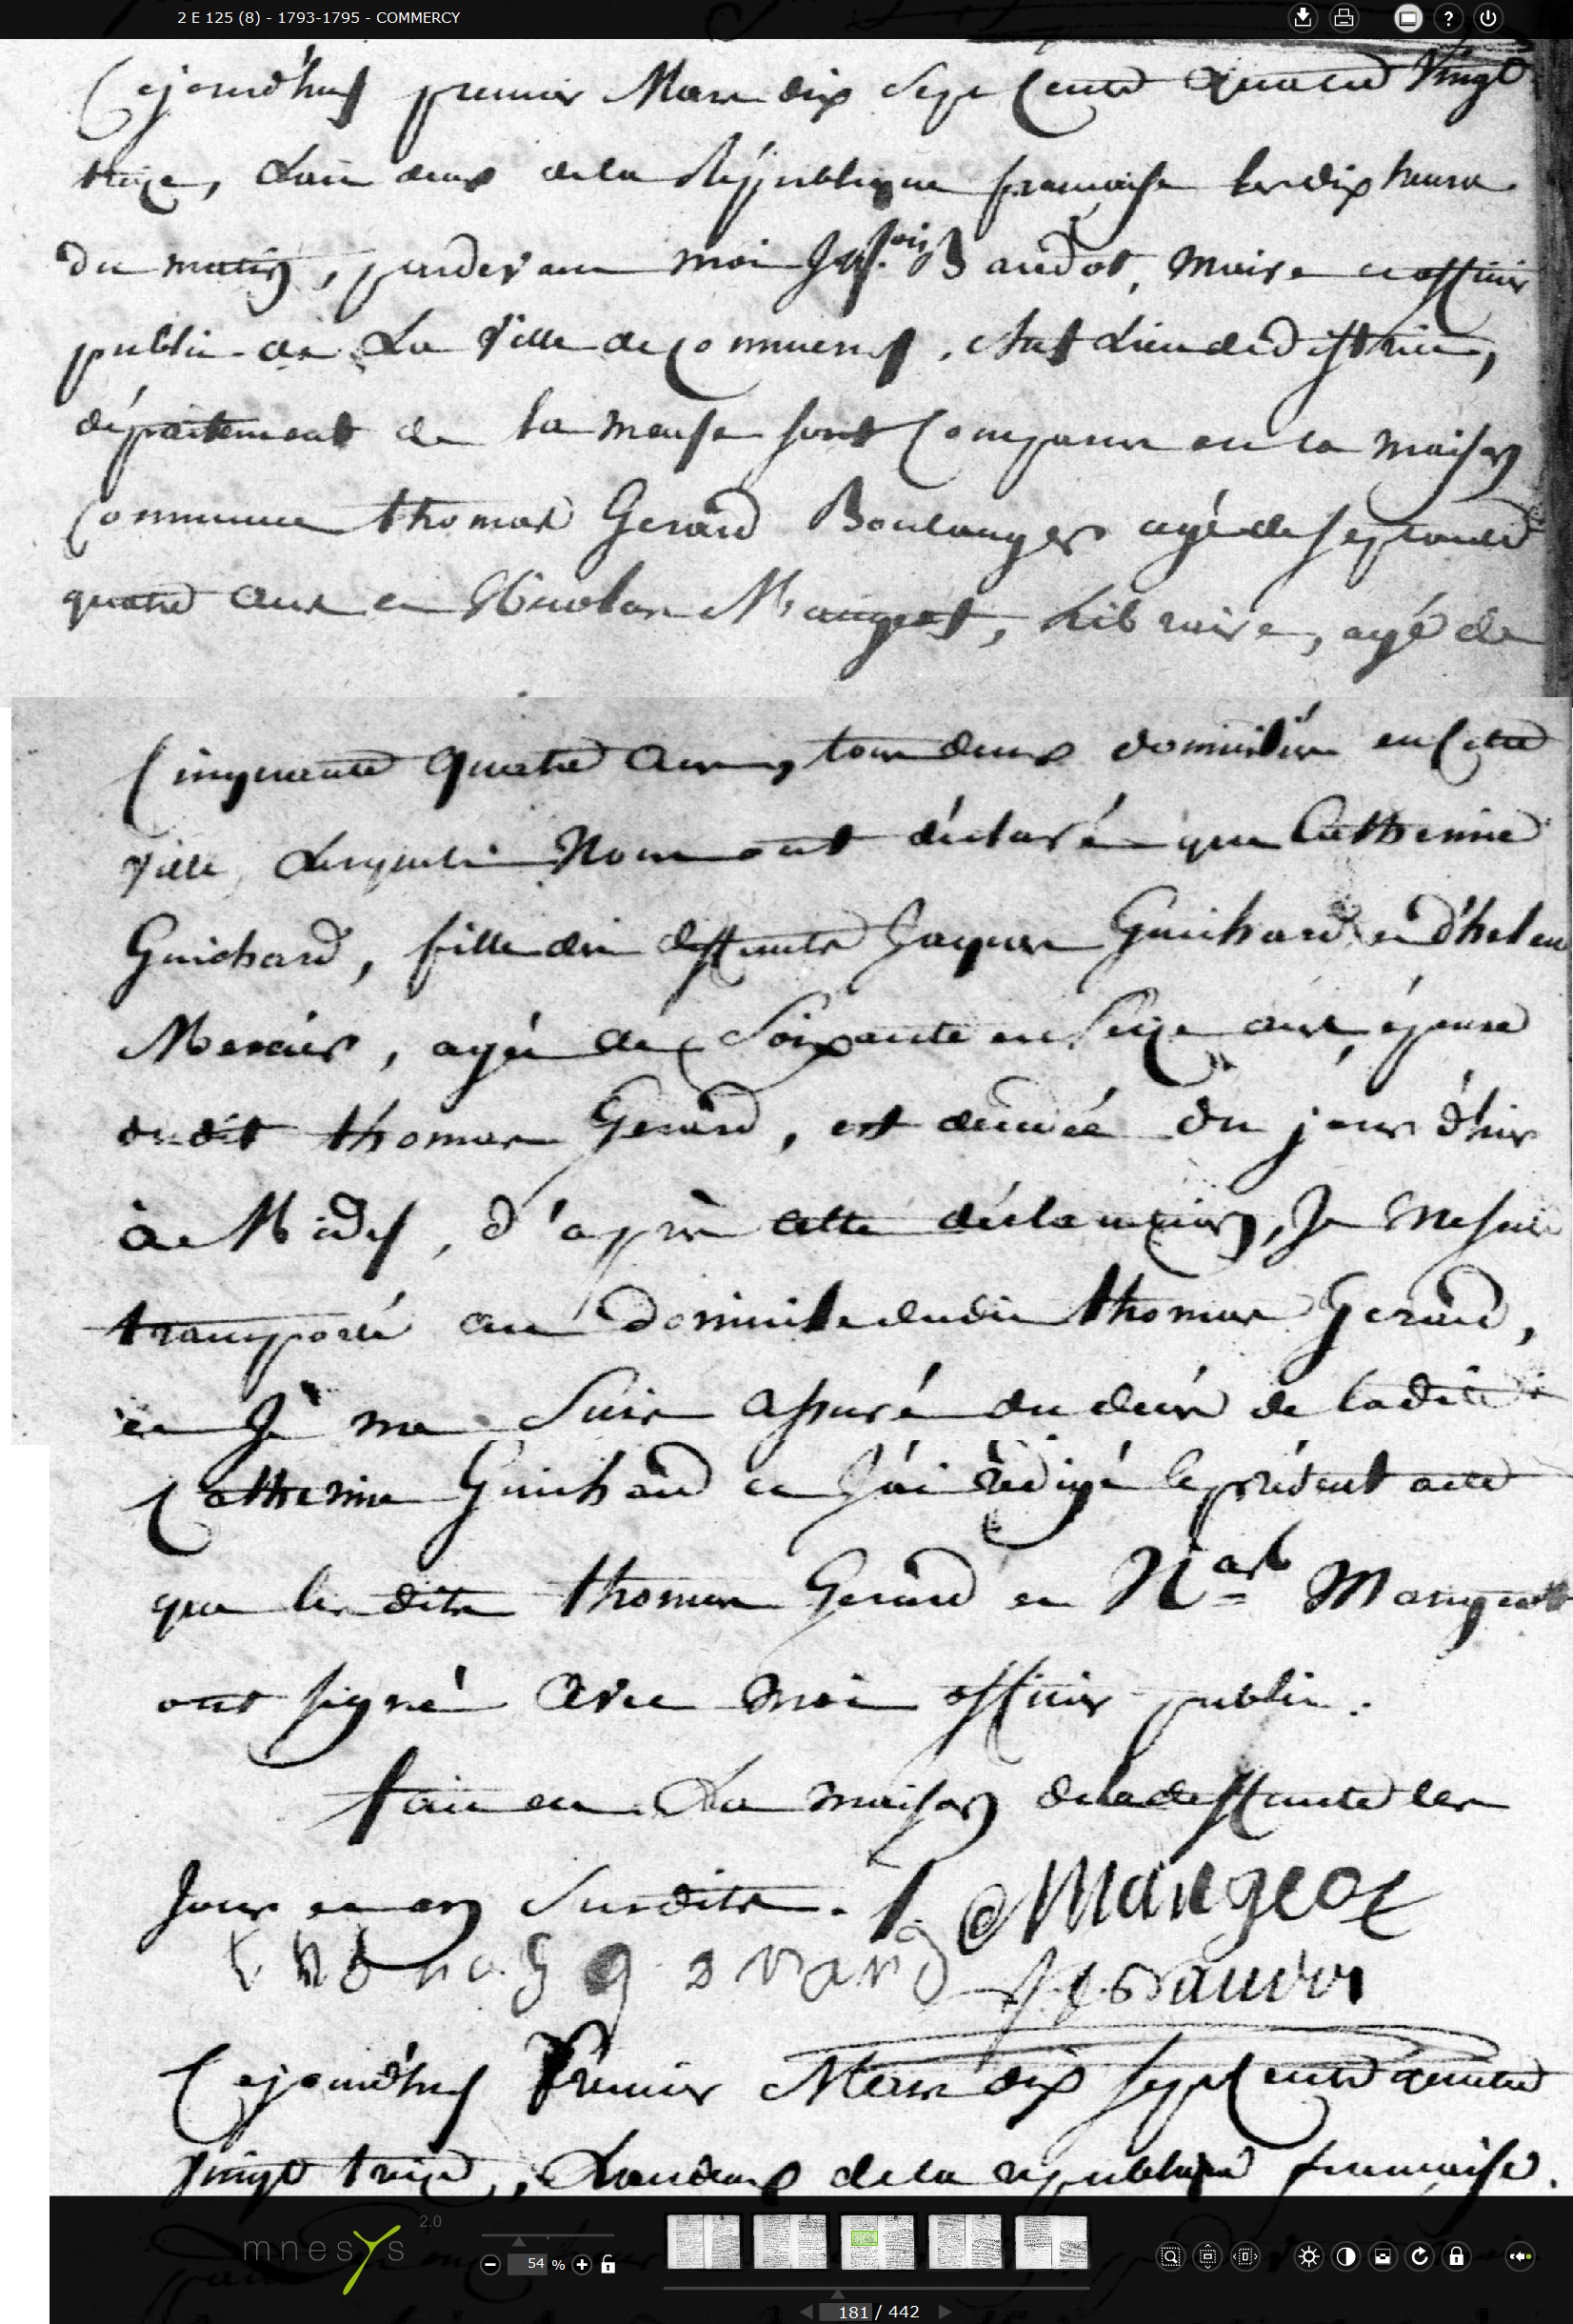 2 E 125 (8) - 1793-1795 - COMMERCY
Cejourd'huy premier Mars dix Sept Cents Quatre Vingt
treize, L'an deux de la République française les dix heures
du matin, pardevant moi Jq. fois Baudot, maire et officier
public de La Ville de Commercy, chef Lieu de District,
département de la meuse sont Comparus en la maison
Commune thomas Gerard Boulanger agé de septante
quatre ans et Nicolas Mangeot, Libraire, agé de
Cinquante quatre ans, tous deux domiciliés en Cette
Ville, Lesquels Nous ont déclaré que Catherine
Guichard, fille des deffunts Jaques Guichard et d'helene
Mercier, agée de Soixante et Seize ans, épouse
dudit thomas Gerard, est décédée du jour d'hier
à Midy, d'après cette déclaration, Je me suis
transporté au domicile dudit thomas Gerard,
et Je me Suis assuré du décès de ladite
Catherine Guichard et J'ai rédigé le présent acte
que les dits thomas Gerard et N.as Mangeot
ont signé avec moi officier public.
fait en La maison de la deffunte les
Jour et an Susdits. Mangeot
thomas gerard Jq. f. Baudot
Cejourd'huy Premier Mars dix sept Cents quatre
Vingt treize, L'an deux de la republique francaise.
mnesys 2.0
54 %
181 / 442